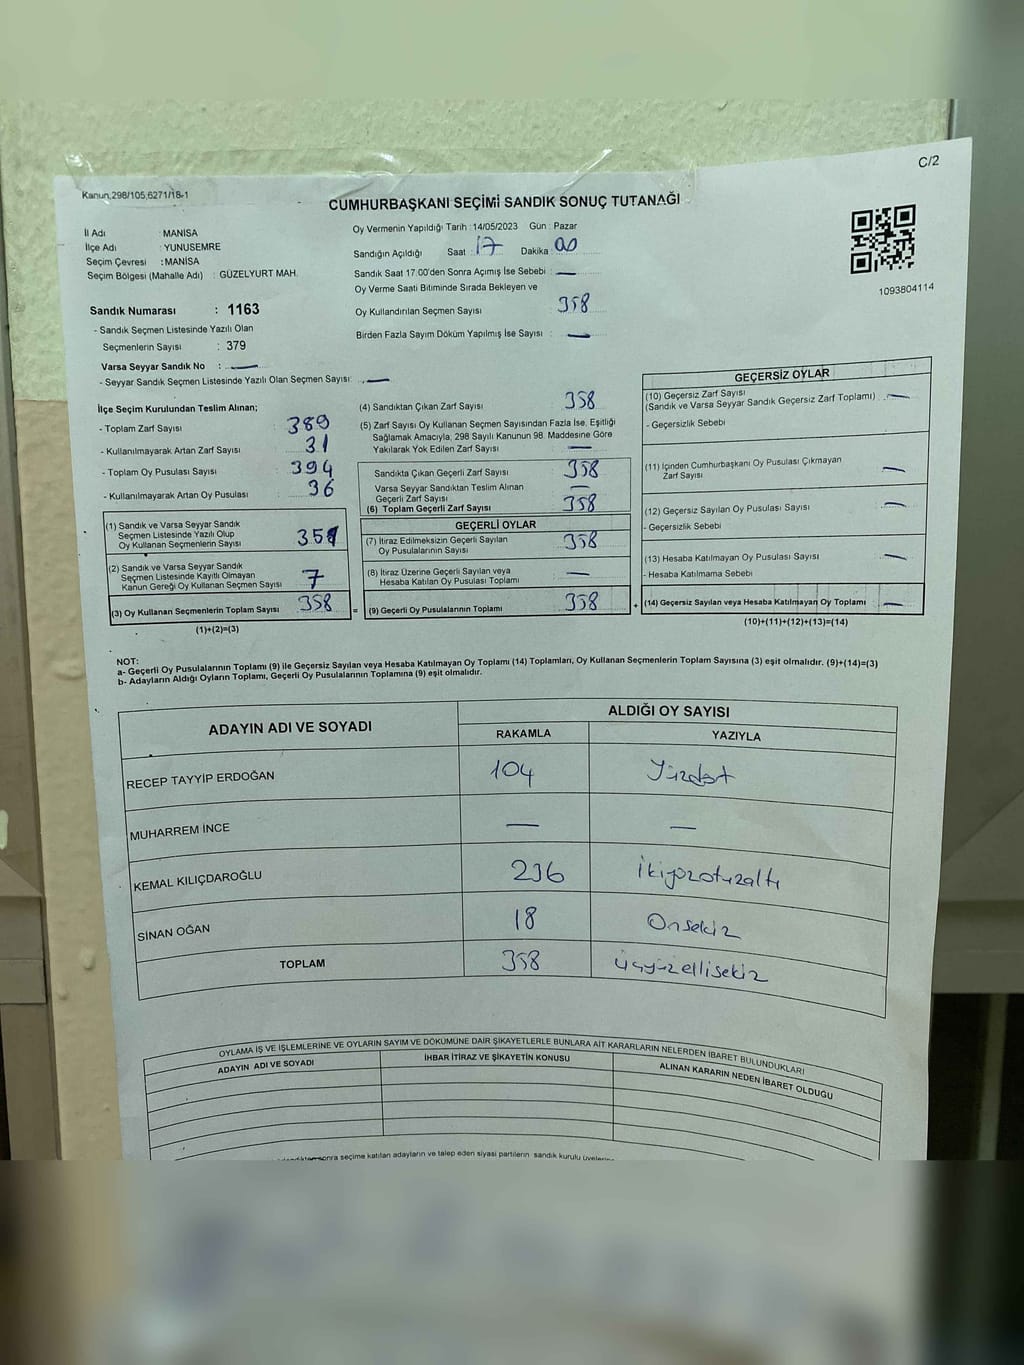 C/2
Kanun,298/105,6271/18-1
CUMHURBAŞKANI SEÇİMİ SANDIK SONUÇ TUTANAĞI
İl Adı : MANİSA
İlçe Adı : YUNUSEMRE
Seçim Çevresi : MANİSA
Seçim Bölgesi (Mahalle Adı) : GÜZELYURT MAH.
Oy Vermenin Yapıldığı Tarih : 14/05/2023 Gün : Pazar
Sandığın Açıldığı Saat : 17 Dakika : 00
Sandık Saat 17:00'den Sonra Açımış İse Sebebi : —
Oy Verme Saati Bitiminde Sırada Bekleyen ve
Oy Kullandırılan Seçmen Sayısı : 358
Birden Fazla Sayım Döküm Yapılmış İse Sayısı : —
1093804114
Sandık Numarası : 1163
- Sandık Seçmen Listesinde Yazılı Olan
Seçmenlerin Sayısı : 379
Varsa Seyyar Sandık No : —
- Seyyar Sandık Seçmen Listesinde Yazılı Olan Seçmen Sayısı: —
İlçe Seçim Kurulundan Teslim Alınan;
- Toplam Zarf Sayısı : 389
- Kullanılmayarak Artan Zarf Sayısı : 31
- Toplam Oy Pusulası Sayısı : 394
- Kullanılmayarak Artan Oy Pusulası : 36
(1) Sandık ve Varsa Seyyar Sandık
Seçmen Listesinde Yazılı Olup
Oy Kullanan Seçmenlerin Sayısı
(2) Sandık ve Varsa Seyyar Sandık
Seçmen Listesinde Kayıtlı Olmayan
Kanun Gereği Oy Kullanan Seçmen Sayısı 7
(3) Oy Kullanan Seçmenlerin Toplam Sayısı 358
(1)+(2)=(3)
(4) Sandıktan Çıkan Zarf Sayısı 358
(5) Zarf Sayısı Oy Kullanan Seçmen Sayısından Fazla İse, Eşitliği
Sağlamak Amacıyla, 298 Sayılı Kanunun 98. Maddesine Göre
Yakılarak Yok Edilen Zarf Sayısı —
Sandıkta Çıkan Geçerli Zarf Sayısı 358
Varsa Seyyar Sandıktan Teslim Alınan
Geçerli Zarf Sayısı —
(6) Toplam Geçerli Zarf Sayısı 358
GEÇERLİ OYLAR
(7) İtiraz Edilmeksizin Geçerli Sayılan
Oy Pusulalarının Sayısı 358
(8) İtiraz Üzerine Geçerli Sayılan veya
Hesaba Katılan Oy Pusulası Toplamı —
= (9) Geçerli Oy Pusulalarının Toplamı 358
GEÇERSİZ OYLAR
(10) Geçersiz Zarf Sayısı
(Sandık ve Varsa Seyyar Sandık Geçersiz Zarf Toplamı) —
- Geçersizlik Sebebi
(11) İçinden Cumhurbaşkanı Oy Pusulası Çıkmayan
Zarf Sayısı —
(12) Geçersiz Sayılan Oy Pusulası Sayısı —
- Geçersizlik Sebebi
(13) Hesaba Katılmayan Oy Pusulası Sayısı —
- Hesaba Katılmama Sebebi
+ (14) Geçersiz Sayılan veya Hesaba Katılmayan Oy Toplamı —
(10)+(11)+(12)+(13)=(14)
NOT:
a- Geçerli Oy Pusulalarının Toplamı (9) ile Geçersiz Sayılan veya Hesaba Katılmayan Oy Toplamı (14) Toplamları, Oy Kullanan Seçmenlerin Toplam Sayısına (3) eşit olmalıdır. (9)+(14)=(3)
b- Adayların Aldığı Oyların Toplamı, Geçerli Oy Pusulalarının Toplamına (9) eşit olmalıdır.
ADAYIN ADI VE SOYADI
ALDIĞI OY SAYISI
RAKAMLA YAZIYLA
RECEP TAYYİP ERDOĞAN 104 Yüzdört
MUHARREM İNCE — —
KEMAL KILIÇDAROĞLU 236 İkiyüzotuzaltı
SİNAN OĞAN 18 Onsekiz
TOPLAM 358 üçyüzellisekiz
OYLAMA İŞ VE İŞLEMLERİNE VE OYLARIN SAYIM VE DÖKÜMÜNE DAİR ŞİKAYETLERLE BUNLARA AİT KARARLARIN NELERDEN İBARET BULUNDUKLARI
ADAYIN ADI VE SOYADI İHBAR İTİRAZ VE ŞİKAYETİN KONUSU ALINAN KARARIN NEDEN İBARET OLDUĞU
sonra seçime katılan adayların ve talep eden siyasi partilerin sandık kurulu